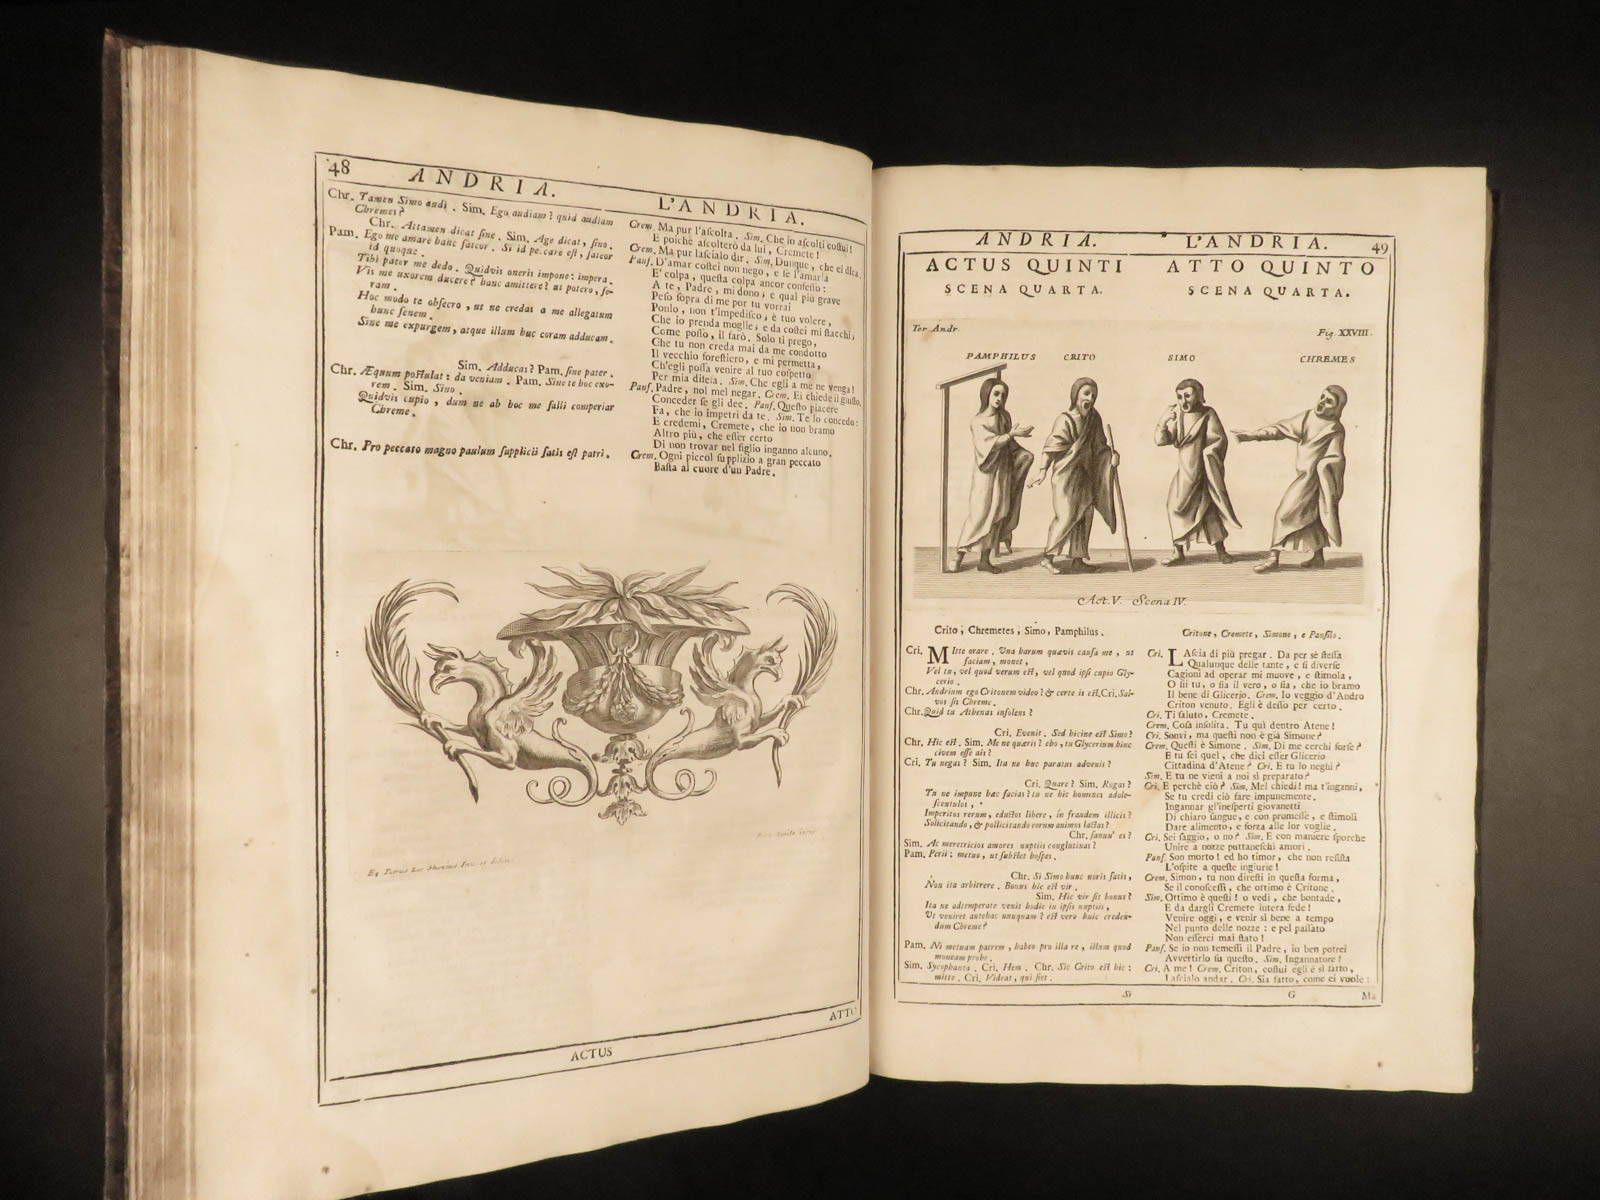 48
ANDRIA.
Chr. Tamen Simo audi. Sim. Ego audiam? quid audiam
Chremes?
Chr. Attamen dicat sine. Sim. Age dicat, sino.
Pam. Ego me amare hanc fateor. Si id peccare est, fateor
id quoque.
Tibi pater me dedo. Quidvis oneris impone: impera.
Vis me uxorem ducere? hanc amittere? ut potero, fe-
ram.
Hoc modo te obsecro, ut ne credas a me allegatum
hunc senem.
Sine me expurgem, atque illum huc coram adducam.
Sim. Adducas? Pam. sine pater.
Chr. Æquum postulat: da veniam. Pam. Sine te hoc exo-
rem. Sim. Sino.
Quidvis cupio, dum ne ab hoc me falli comperiar
Chreme.
Chr. Pro peccato magno paulum supplicii satis est patri.
L'ANDRIA.
Crem. Ma pur l'ascolta. Sim. Che io ascolti costui!
E poichè ascolterò da lui, Cremete!
Crem. Ma pur lascialo dir. Sim. Dunque, che ei dica.
Panf. D'amar costei non nego, e se l'amarla
E' colpa, questa colpa ancor confesso:
A te, Padre, mi dono; e qual più grave
Peso sopra di me por tu vorrai
Ponlo, non t'impedisco; è tuo volere,
Che io prenda moglie; e da costei mi stacchi;
Come posso, il farò. Solo ti prego,
Che tu non creda mai da me condotto
Il vecchio forestiero, e mi permetta,
Ch'egli possa venire al tuo cospetto
Per mia difesa. Sim. Che egli a me ne venga!
Panf. Padre, nol mel negar. Crem. Ei chiede il giusto.
Conceder se gli dee. Panf. Questo piacere
Fa, che io impetri da te. Sim. Te lo concedo:
E credemi, Cremete, che io non bramo
Altro più, che esser certo
Di non trovar nel figlio inganno alcuno.
Crem. Ogni piccol supplizio a gran peccato
Basta al cuore d'un Padre.
ACTUS
ATTO
ANDRIA.
L'ANDRIA.
49
ACTUS QUINTI
SCENA QUARTA.
ATTO QUINTO
SCENA QUARTA.
Ter. Andr.
Fig. XXVIII.
PAMPHILUS CRITO SIMO CHREMES
Act. V. Scena IV.
Crito, Chremetes, Simo, Pamphilus.
Cri. MItte orare. Una harum quævis causa me, ut
faciam, monet,
Vel tu, vel quod verum est, vel quod ipsi cupio Gly-
cerio.
Chr. Andrium ego Critonem video? & certe is est. Cri. Sal-
vos sis Chreme.
Chr. Quid tu Athenas insolens?
Cri. Evenit. Sed hicine est Simo?
Chr. Hic est. Sim. Me ne quæris? eho, tu Glycerium hinc
civem esse ais?
Cri. Tu negas? Sim. Ita ne huc paratus advenis?
Cri. Quare? Sim. Rogas?
Tu ne impune hæc facias? tu ne hic homines adole-
scentulos,
Imperitos rerum, eductos libere, in fraudem illicis?
Solicitando, & pollicitando eorum animos lactas?
Chr. sanun' es?
Sim. Ac meretricios amores nuptiis conglutinas?
Pam. Perii: metuo, ut substet hospes.
Chr. Si Simo hunc noris satis,
Non ita arbitrere. Bonus hic est vir.
Sim. Hic vir sit bonus?
Ita ne adtemperate venit hodie in ipsis nuptiis,
Ut veniret antehac nunquam? est vero huic creden-
dum Chreme?
Pam. Ni metuam patrem, habeo pro illa re, illum quod
moneam probe.
Sim. Sycophanta. Cri. Hem. Chr. Sic Crito est hic:
mitte. Cri. Videat, qui siet.
Si
Critone, Cremete, Simone, e Panfilo.
Cri. LAscia di più pregar. Da per sè stessa
Qualunque delle tante, e sì diverse
Cagioni ad operar mi muove, e stimola,
O sii tu, o sia il vero, o sia, che io bramo
Il bene di Glicerio. Crem. Io veggio d'Andro
Criton venuto. Egli è desso per certo.
Cri. Ti saluto, Cremete.
Crem. Cosa insolita. Tu quì dentro Atene!
Cri. Sonvi, ma questi non è già Simone?
Crem. Questi è Simone. Sim. Di me cerchi forse?
E tu sei quel, che dici esser Glicerio
Cittadina d'Atene? Cri. E tu lo neghi?
Sim. E tu ne vieni a noi sì preparato?
Cri. E perchè ciò? Sim. Mel chiedi! ma t'inganni,
Se tu credi ciò fare impunemente.
Ingannar gl'inesperti giovanetti
Di chiaro sangue, e con promesse, e stimoli
Dare alimento, e forza alle lor voglie.
Cri. Sei saggio, o no? Sim. E con maniere sporche
Unire a nozze puttaneschi amori.
Panf. Son morto! ed ho timor, che non resista
L'ospite a queste ingiurie!
Crem. Simon, tu non diresti in questa forma,
Se il conoscessi, che ottimo è Critone.
Sim. Ottimo è questi! o vedi, che bontade,
E da dargli Cremete intera fede!
Venire oggi, e venir sì bene a tempo
Nel punto delle nozze: e pel passato
Non esserci mai stato!
Panf. Se io non temessi il Padre, io ben potrei
Avvertirlo su questo. Sim. Ingannatore!
Cri. A me! Crem. Criton, costui egli è sì fatto,
Lascialo andar. Cri. Sia fatto, come ei vuole:
G
Ma